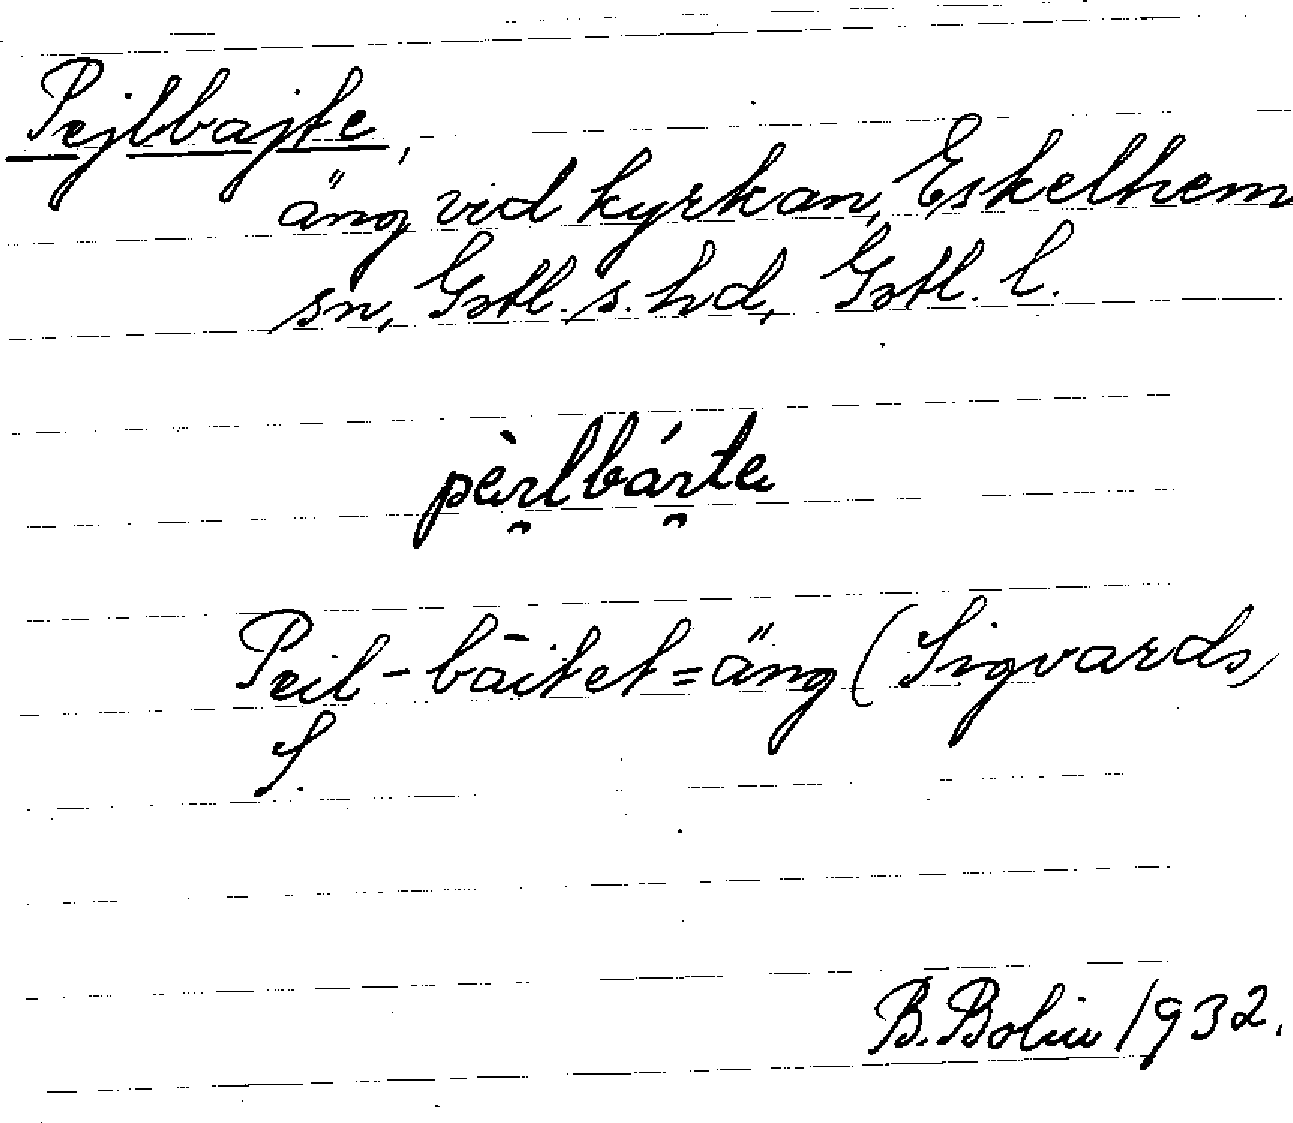 Pejlbajte,
äng vid kyrkan, Eskelhem
sn, Gotl. s. hd, Gotl. l.
pèi̯lbái̯ta
Peil-bāitet = äng (Sigvards,
S.
B. Bolin 1932.